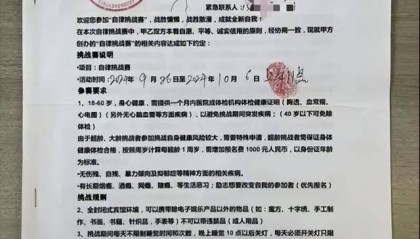 紧急联系人：
欢迎您参加"自律挑战赛"，战胜慵懒，战胜散漫，成就全新自我！
在本次自律挑战赛中，甲乙双方本着自愿、平等、诚实信用的原则，经协商一致，现就甲方
创办的"自律挑战赛"的相关内容达成如下约定：
挑战赛说明
·项目：自律挑战赛
·活动时间：2024年9月26日至2024年10月6日
参赛要求
1、18-60岁，身心健康，需提供一个月内医院或体检机构体检健康证明（胸透、血常规、
心电图）（另外无心脑血管等方面疾病），以避免挑战期间突发疾病；（40岁以下可免体
检）
由于超龄、大龄挑战者参加挑战自身健康风险较大，需要特殊申请，超龄挑战者需保证身体
健康体检合格，按照周岁计算每超龄1周岁，需增加报名费1000元人民币，以身份证年龄
为标准。
·无伤残、自残、暴力倾向及抑郁症等精神方面的相关疾病。
·有长期烟瘾、酒瘾、网瘾、赌瘾、等生活恶习；励志想要改变自我的参加者（优先报名）
挑战规则
1、全封闭式宾馆环境，可以携带除电子娱乐产品以外的物品（如：魔方、十字绣、手工制
作、书画、书籍、针织品，手表等）不可以带违禁品（成人用品）
3、挑战期间每天不限制睡觉时间和次数，晚上睡觉10点以后关灯，每天必须开关灯只限